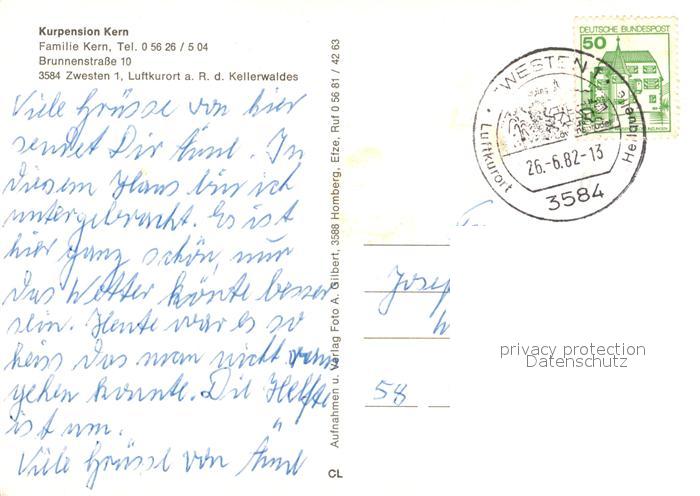 Kurpension Kern
Familie Kern, Tel. 0 56 26 / 5 04
Brunnenstraße 10
3584 Zwesten 1, Luftkurort a. R. d. Kellerwaldes
Viele Grüsse von hier
sendet Dir Änne. In
diesem Haus bin ich
untergebracht. Es ist
hier ganz schön, nur
das Wetter könte besser
sein. Heute war es so
heiss das man nicht
gehen konnte. Die Hälfte
ist um.
Viele Grüsse von Änne
Aufnahmen u. Verlag Foto A. Gilbert, 3588 Homberg, Efze, Ruf 0 56 81 / 42 63
CL
DEUTSCHE BUNDESPOST
50
ZWESTEN 1
Luftkurort
Heilquelle
26.-6.82-13
3584
Josef
58
privacy protection
Datenschutz